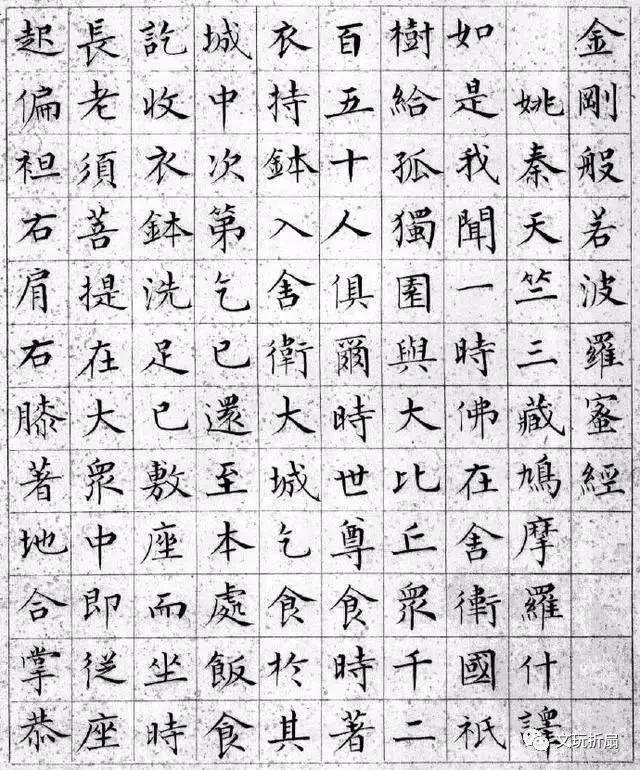 金剛般若波羅蜜經
姚秦天竺三藏鳩摩羅什譯
如是我聞一時佛在舍衛國祇
樹給孤獨園與大比丘眾千二
百五十人俱爾時世尊食時著
衣持鉢入舍衛大城乞食於其
城中次第乞已還至本處飯食
訖收衣鉢洗足已敷座而坐時
長老須菩提在大眾中即從座
起偏袒右肩右膝著地合掌恭
文玩折扇